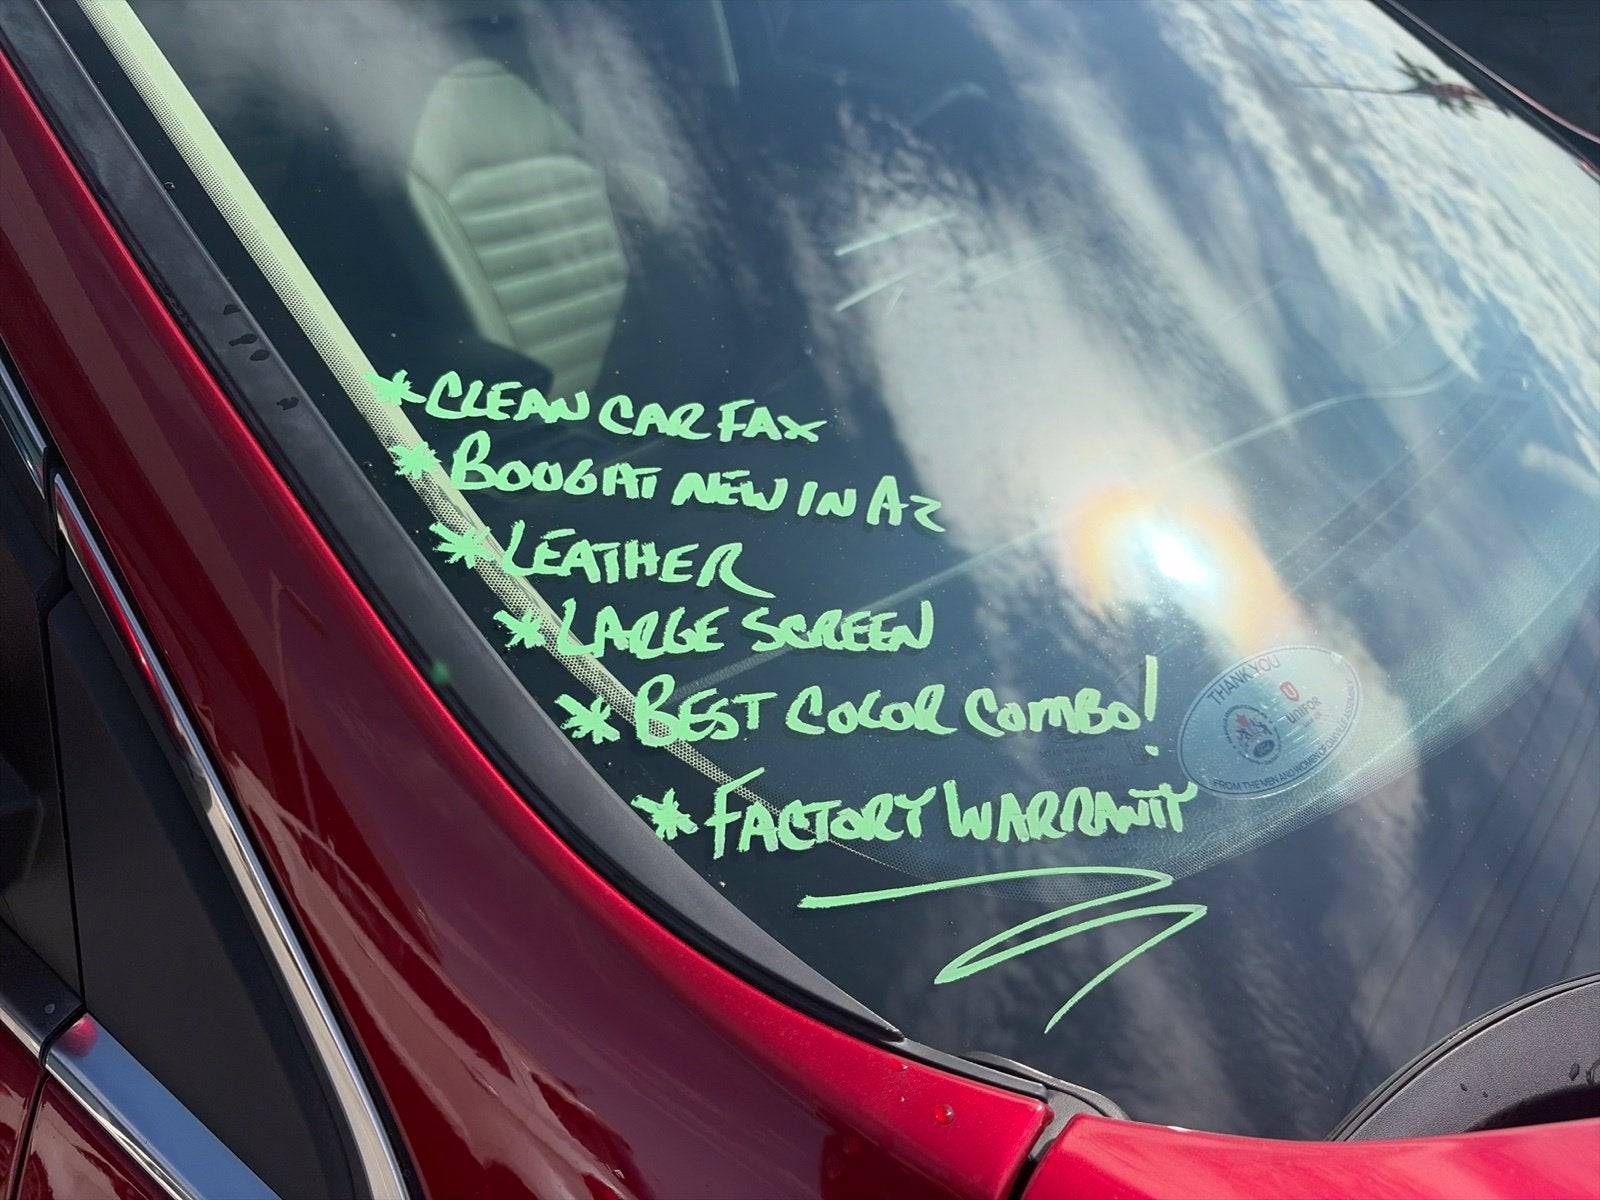 * CLEAN CAR FAX
* BOUGHT NEW IN AZ
* LEATHER
* LARGE SCREEN
* BEST COLOR COMBO!
* FACTORY WARRANTY
THANK YOU
UNIFOR
FROM THE MEN AND WOMEN OF OAKVILLE ASSEMBLY